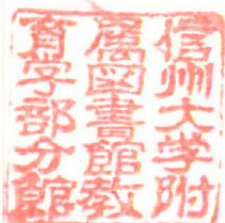 信州大学附
属図書館教
育学部分館